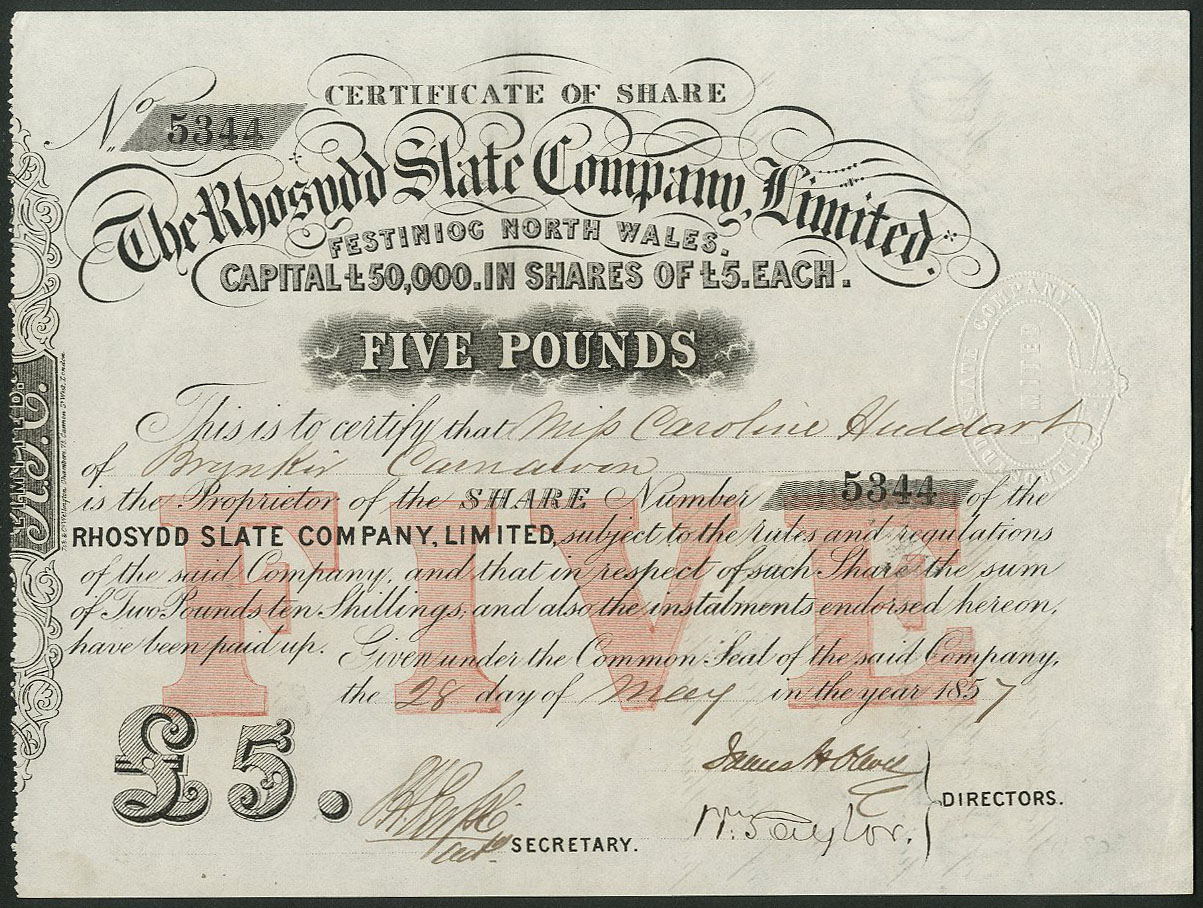 CERTIFICATE OF SHARE
No 5344
The Rhosydd Slate Company, Limited.
FESTINIOG NORTH WALES.
CAPITAL £50,000. IN SHARES OF £5. EACH.
FIVE POUNDS
This is to certify that Miss Caroline Huddart
of Brynkir Carnarvon
is the Proprietor of the SHARE Number 5344 of the
RHOSYDD SLATE COMPANY, LIMITED, subject to the rules and regulations
of the said Company, and that in respect of such Share the sum
of Two Pounds ten Shillings, and also the instalments endorsed hereon,
have been paid up. Given under the Common Seal of the said Company,
the 28 day of May in the year 1857
FIVE
£5.
SECRETARY.
James H
Wm Taylor.
DIRECTORS.
SLATE COMPANY
LIMITED
LIMITED.
R.S.C.